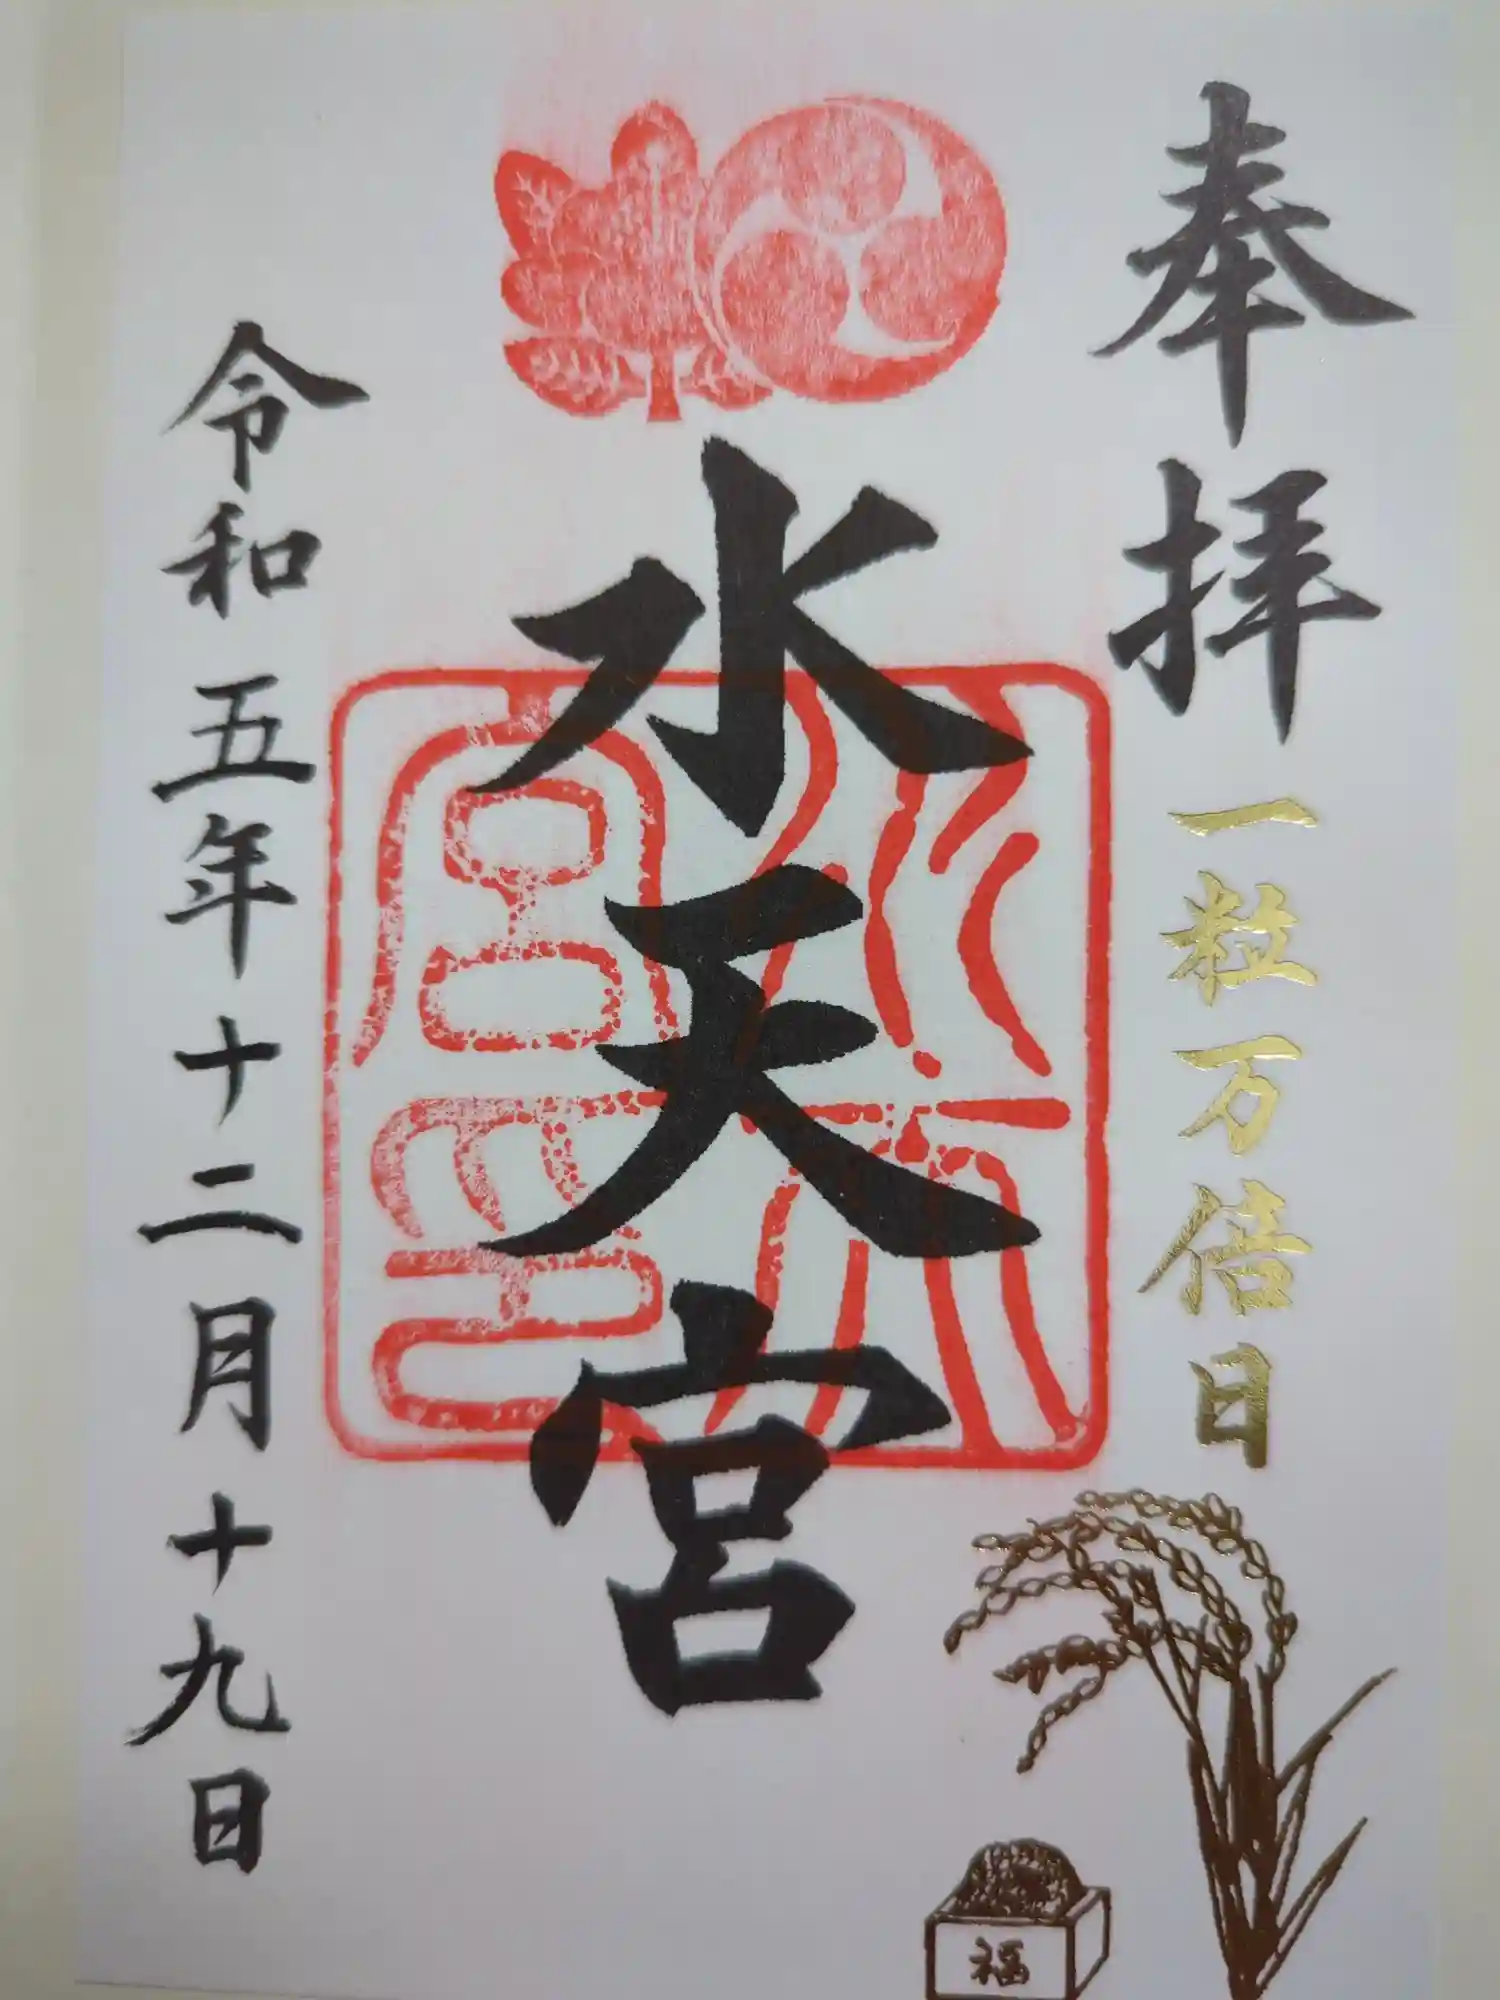 奉拝
一粒万倍日
水天宮
水天宮璽
令和五年十二月十九日
福